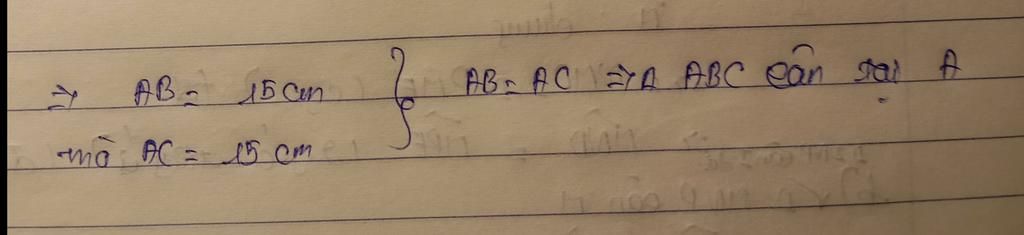 => AB = 15 cm } AB = AC => Δ ABC cân tại A
mà AC = 15 cm